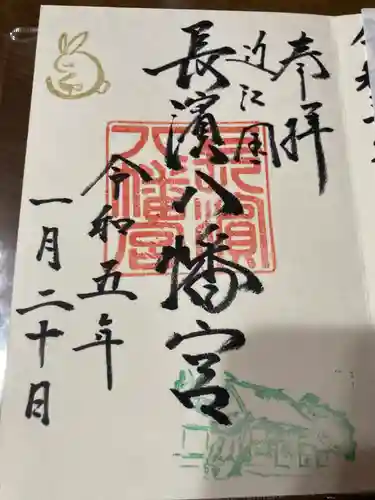 奉拝
近江国
長濱八幡宮
長濱
八幡宮
令和五年
一月二十日